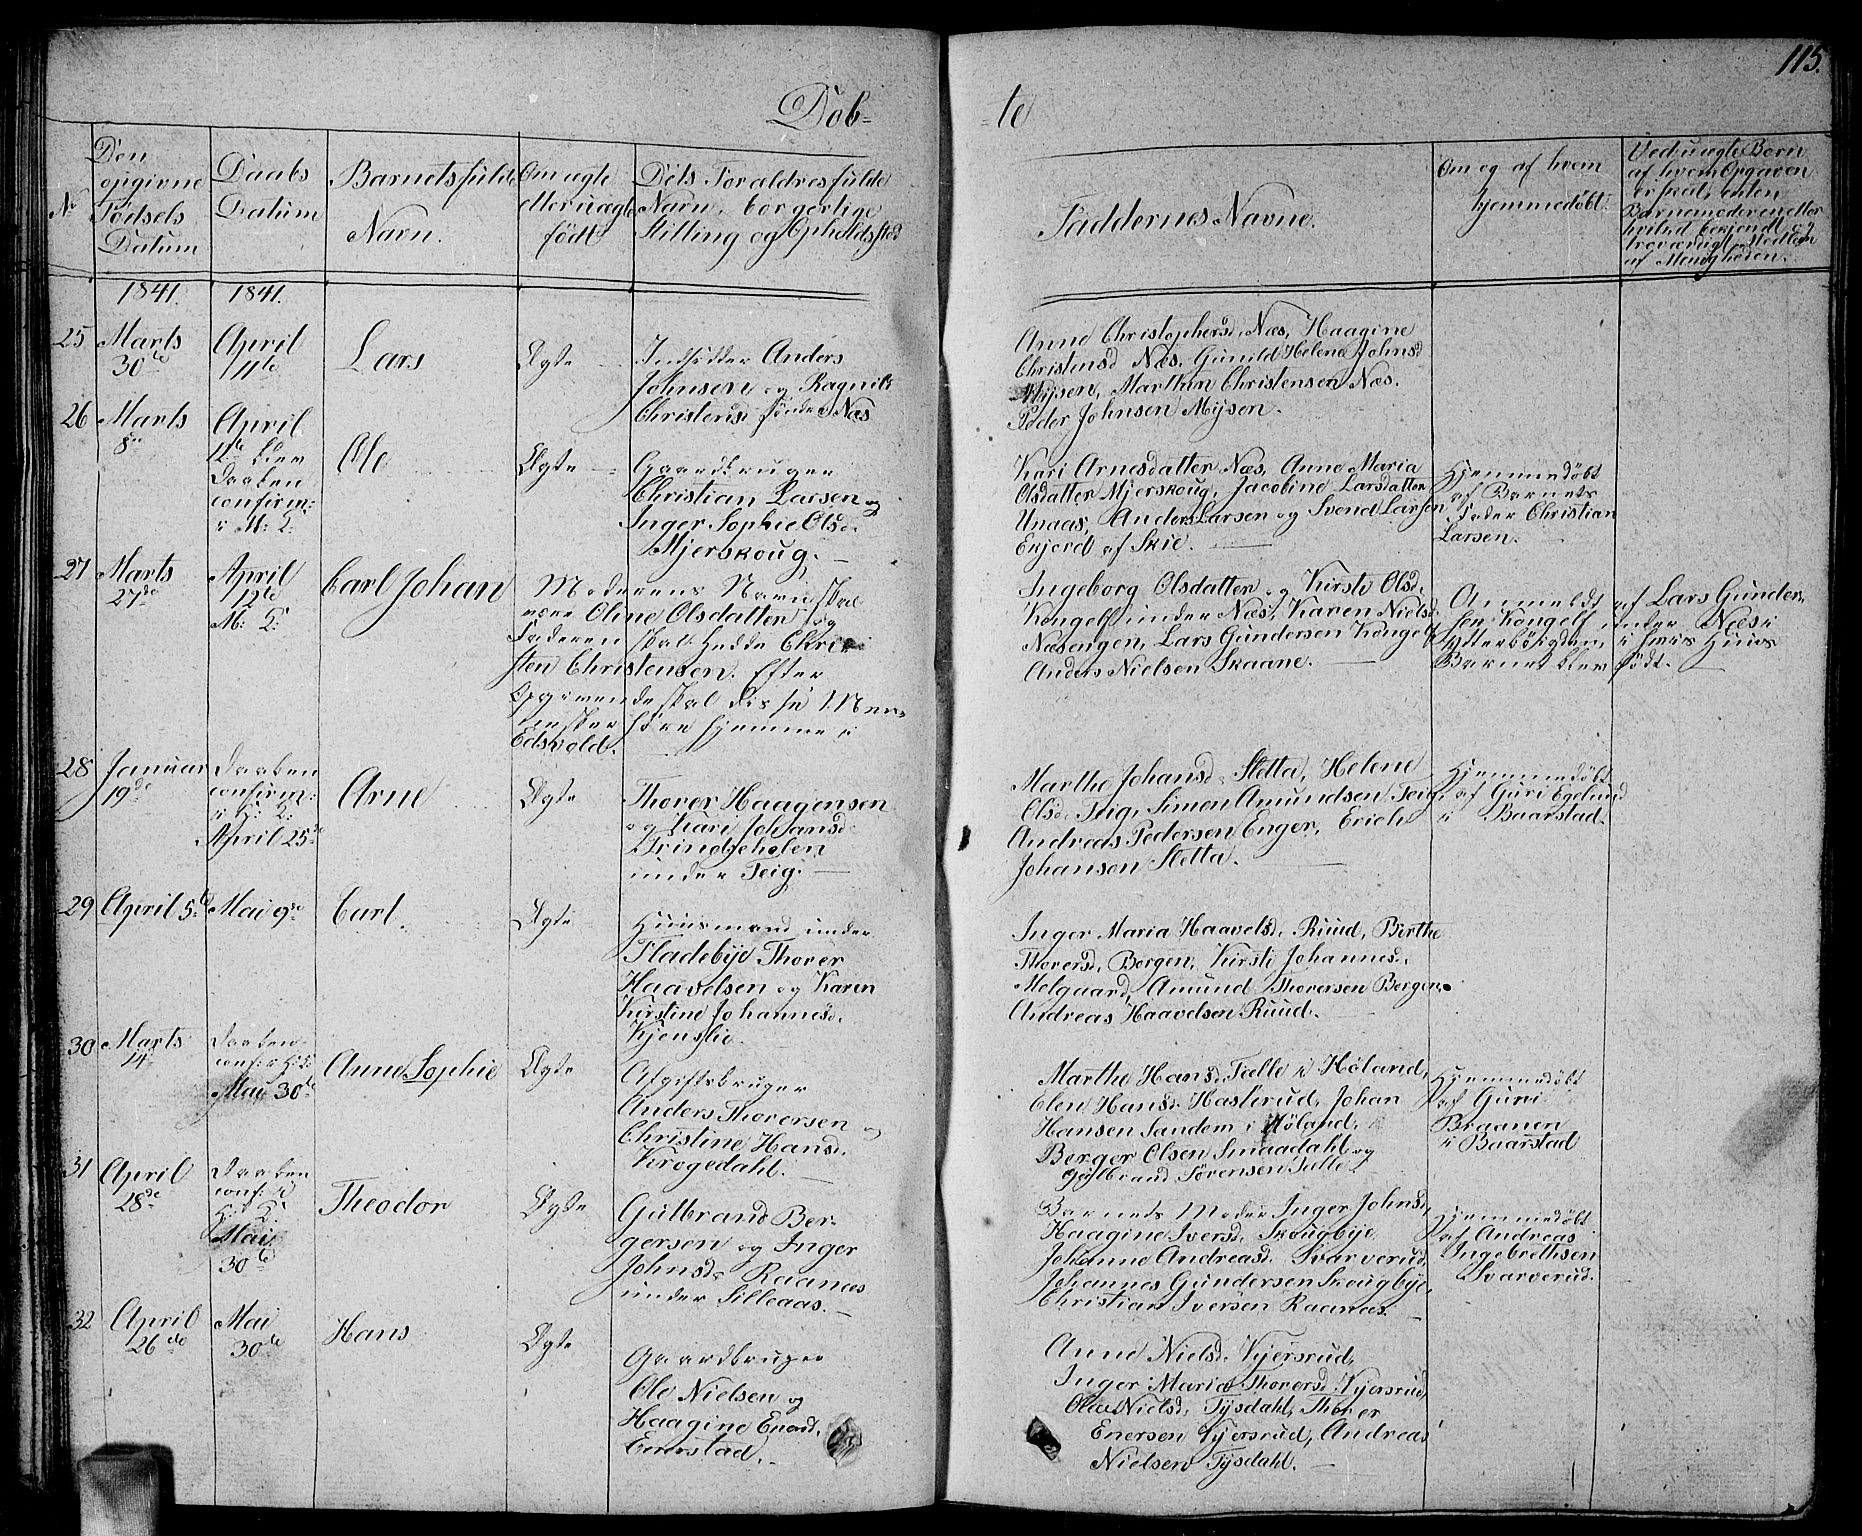 115.
Døb=
=te
No
Den opgivne Fødsels Datum
Daabs Datum
Barnets fulde Navn.
Om ægte eller uægte født
Dets Forældres fulde Navn, borgerlige Stilling og Opholdssted
Faddernes Navne.
Om og af hvem hjemmedøbt.
Ved uægte Børn af hvem Opgaven er skeet, enten Barnemoderen eller hvilket bekjendt og troværdigt Medlem af Menigheden.
1841.
1841.
25
Marts 30te
April 11te
Lars
Ægte
Indsidder Anders
Johnsen og Ragnild
Christensd. under Næs
Anne Christophersd. Næs, Haagine
Christensd Næs, Gunild Helene Johnsd
Mysen, Marthin Christensen Næs.
Peder Johnsen Mysen.
26
Marts 8de
April
11te blev
Daaben
confirm:
i M: K:
Ole
Ægte
Gaardbruger
Christian Larsen og
Inger Sophie Olsd.
Mjerskoug.
Kari Arnesdatter Næs, Anne Maria
Olsdatter Mjerskoug, Jacobine Larsdatter
Unaas, Anders Larsen og Svend Larsen
Erjord af Skie.
Hjemmedøbt
af Barnets
Fader Christian
Larsen.
27
Marts 27de
April
12te
M: K:
Carl Johan
Moderens Navn skal
være Oline Olsdatter og
Faderen skal hedde Chri-
sten Christensen. Efter
Opgivende skal disse Men-
nesker høre hjemme i
Edsvold.
Ingeborg Olsdatter og Kirsti Olsd.
Kongelf under Næs, Karen Nielsd.
Næsengen, Lars Gundersen Kongelf
Anders Nielsen Skaane.
Anmeldt af Lars Gunder-
sen Kongelf under Næs i
Ytterbøigden, i hvis Huus
Barnet blev født.
28
Januar 19de
Daaben
confirm:
i H: K:
April 25de
Arne
Ægte
Thorer Haagensen
og Kari Johansd.
Grindjeholen
under Teig.
Marthe Johansd. Stetta, Helene
Olsd. Teig, Simen Amundsen Teig,
Andreas Pedersen Enger, Erich
Johansen Stetta.
Hjemmedøbt
af Guri Egelund
i Baarstad.
29
April 5te
Mai 9de
Carl.
Ægte
Huusmand under
Fladebye Thorer
Haavelsen og Karen
Kirstine Johannesd.
Kjenslie
Inger Maria Haavelsd. Ruud, Berthe
Thorersd. Bergen, Kirsti Johannesd.
Melgaard, Amund Thorersen Bergen,
Andreas Haavelsen Ruud.
30
Marts 14de
Daaben
conf: i H: K:
Mai 30te
Anne Sophie
Ægte
Afgiftsbruger
Anders Thorersen og
Christine Hansd.
Krogedahl.
Marthe Hansd. Tælle i Høland,
Elen Hansd. Hasterud, Johan
Hansen Sandem i Høland,
Berger Olsen Smaadahl og
Gulbrand Sørensen Tælle
Hjemmedøbt
af Guri
Braanen
i Baarstad
31
April 28de
Daaben
conf: i
H: K:
Mai
30te
Theodor
Ægte
Gulbrand Ber-
gersen og Inger
Johnsd. Raanæs
under Tilleaas.
Barnets Moder Inger Johnsd,
Haagine Iversd. Skougbye
Johanne Andreasd. Svarverud,
Johannes Gundersen Skougbye,
Christian Iversen Raanæs.
Hjemmedøbt
af Andreas
Ingebrethsen
Svarverud.
32
April 26de
Mai
30te
Hans
Ægte
Gaardbruger
Ole Nielsen og
Haagine Enersd.
Enerstad.
Anne Nielsd. Kjersrud,
Inger Maria Thorersd. Kjersrud,
Olea Nielsd. Tysdahl, Thorer
Enersen Kjersrud, Andreas
Nielsen Tysdahl.